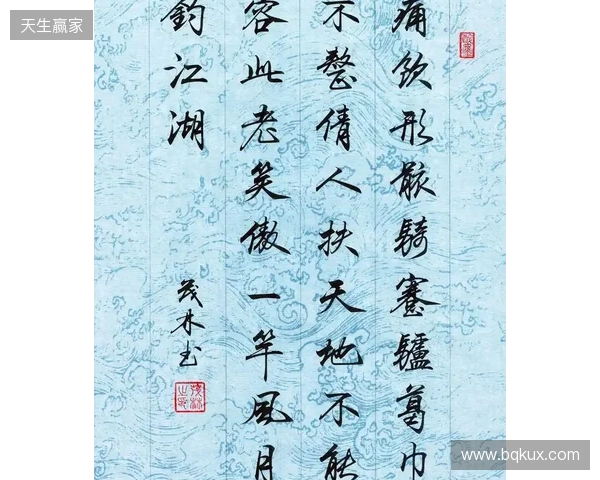 天生赢家
痛飲形骸騎蹇驢葛巾
不整倩人扶天地不能
容此老笑傲一竿風月
釣江湖
茂林书
www.bqkux.com